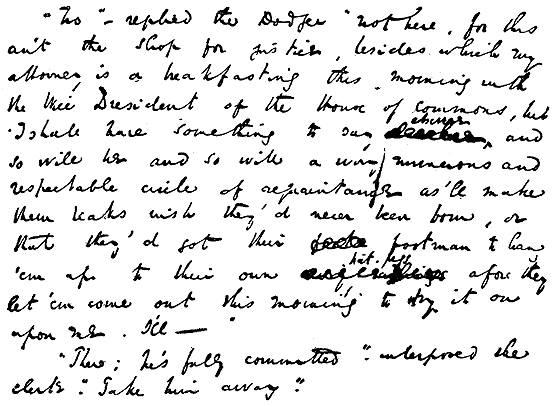 "No" - replied the Dodger "not here, for this
ain't the shop for justice, besides which my
attorney is a breakfasting this morning with
the Wice President of the House of Commons, but
I shall have something to say elsewhere, and
so will he and so will a wery numerous and
respectable circle of acquaintance as'll make
them beaks wish they'd never been born, or
that they'd got their footman to hang
'em up to their own hat-pegs afore they
let 'em come out this morning to try it on
upon me. I'll — "
"There; he's fully committed". interposed the
clerk. "Take him away".